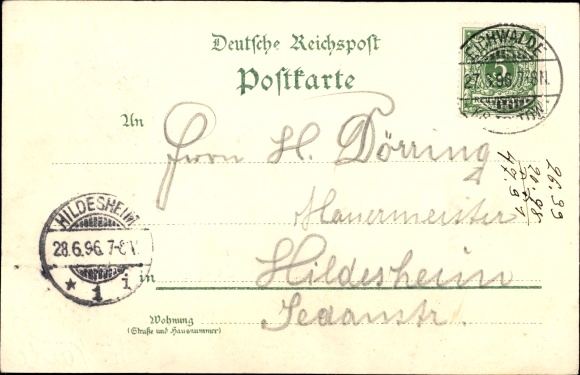 Deutsche Reichspost
Postkarte
EICHWALDE
27.6.96.7-8N.
5
An
Herrn H. Dörring
Mauermeister
in Hildesheim
Sedanstr.
Wohnung
(Straße und Hausnummer)
HILDESHEIM
28.6.96.7-8V.
* 1 i
26.99
20.98
47.97